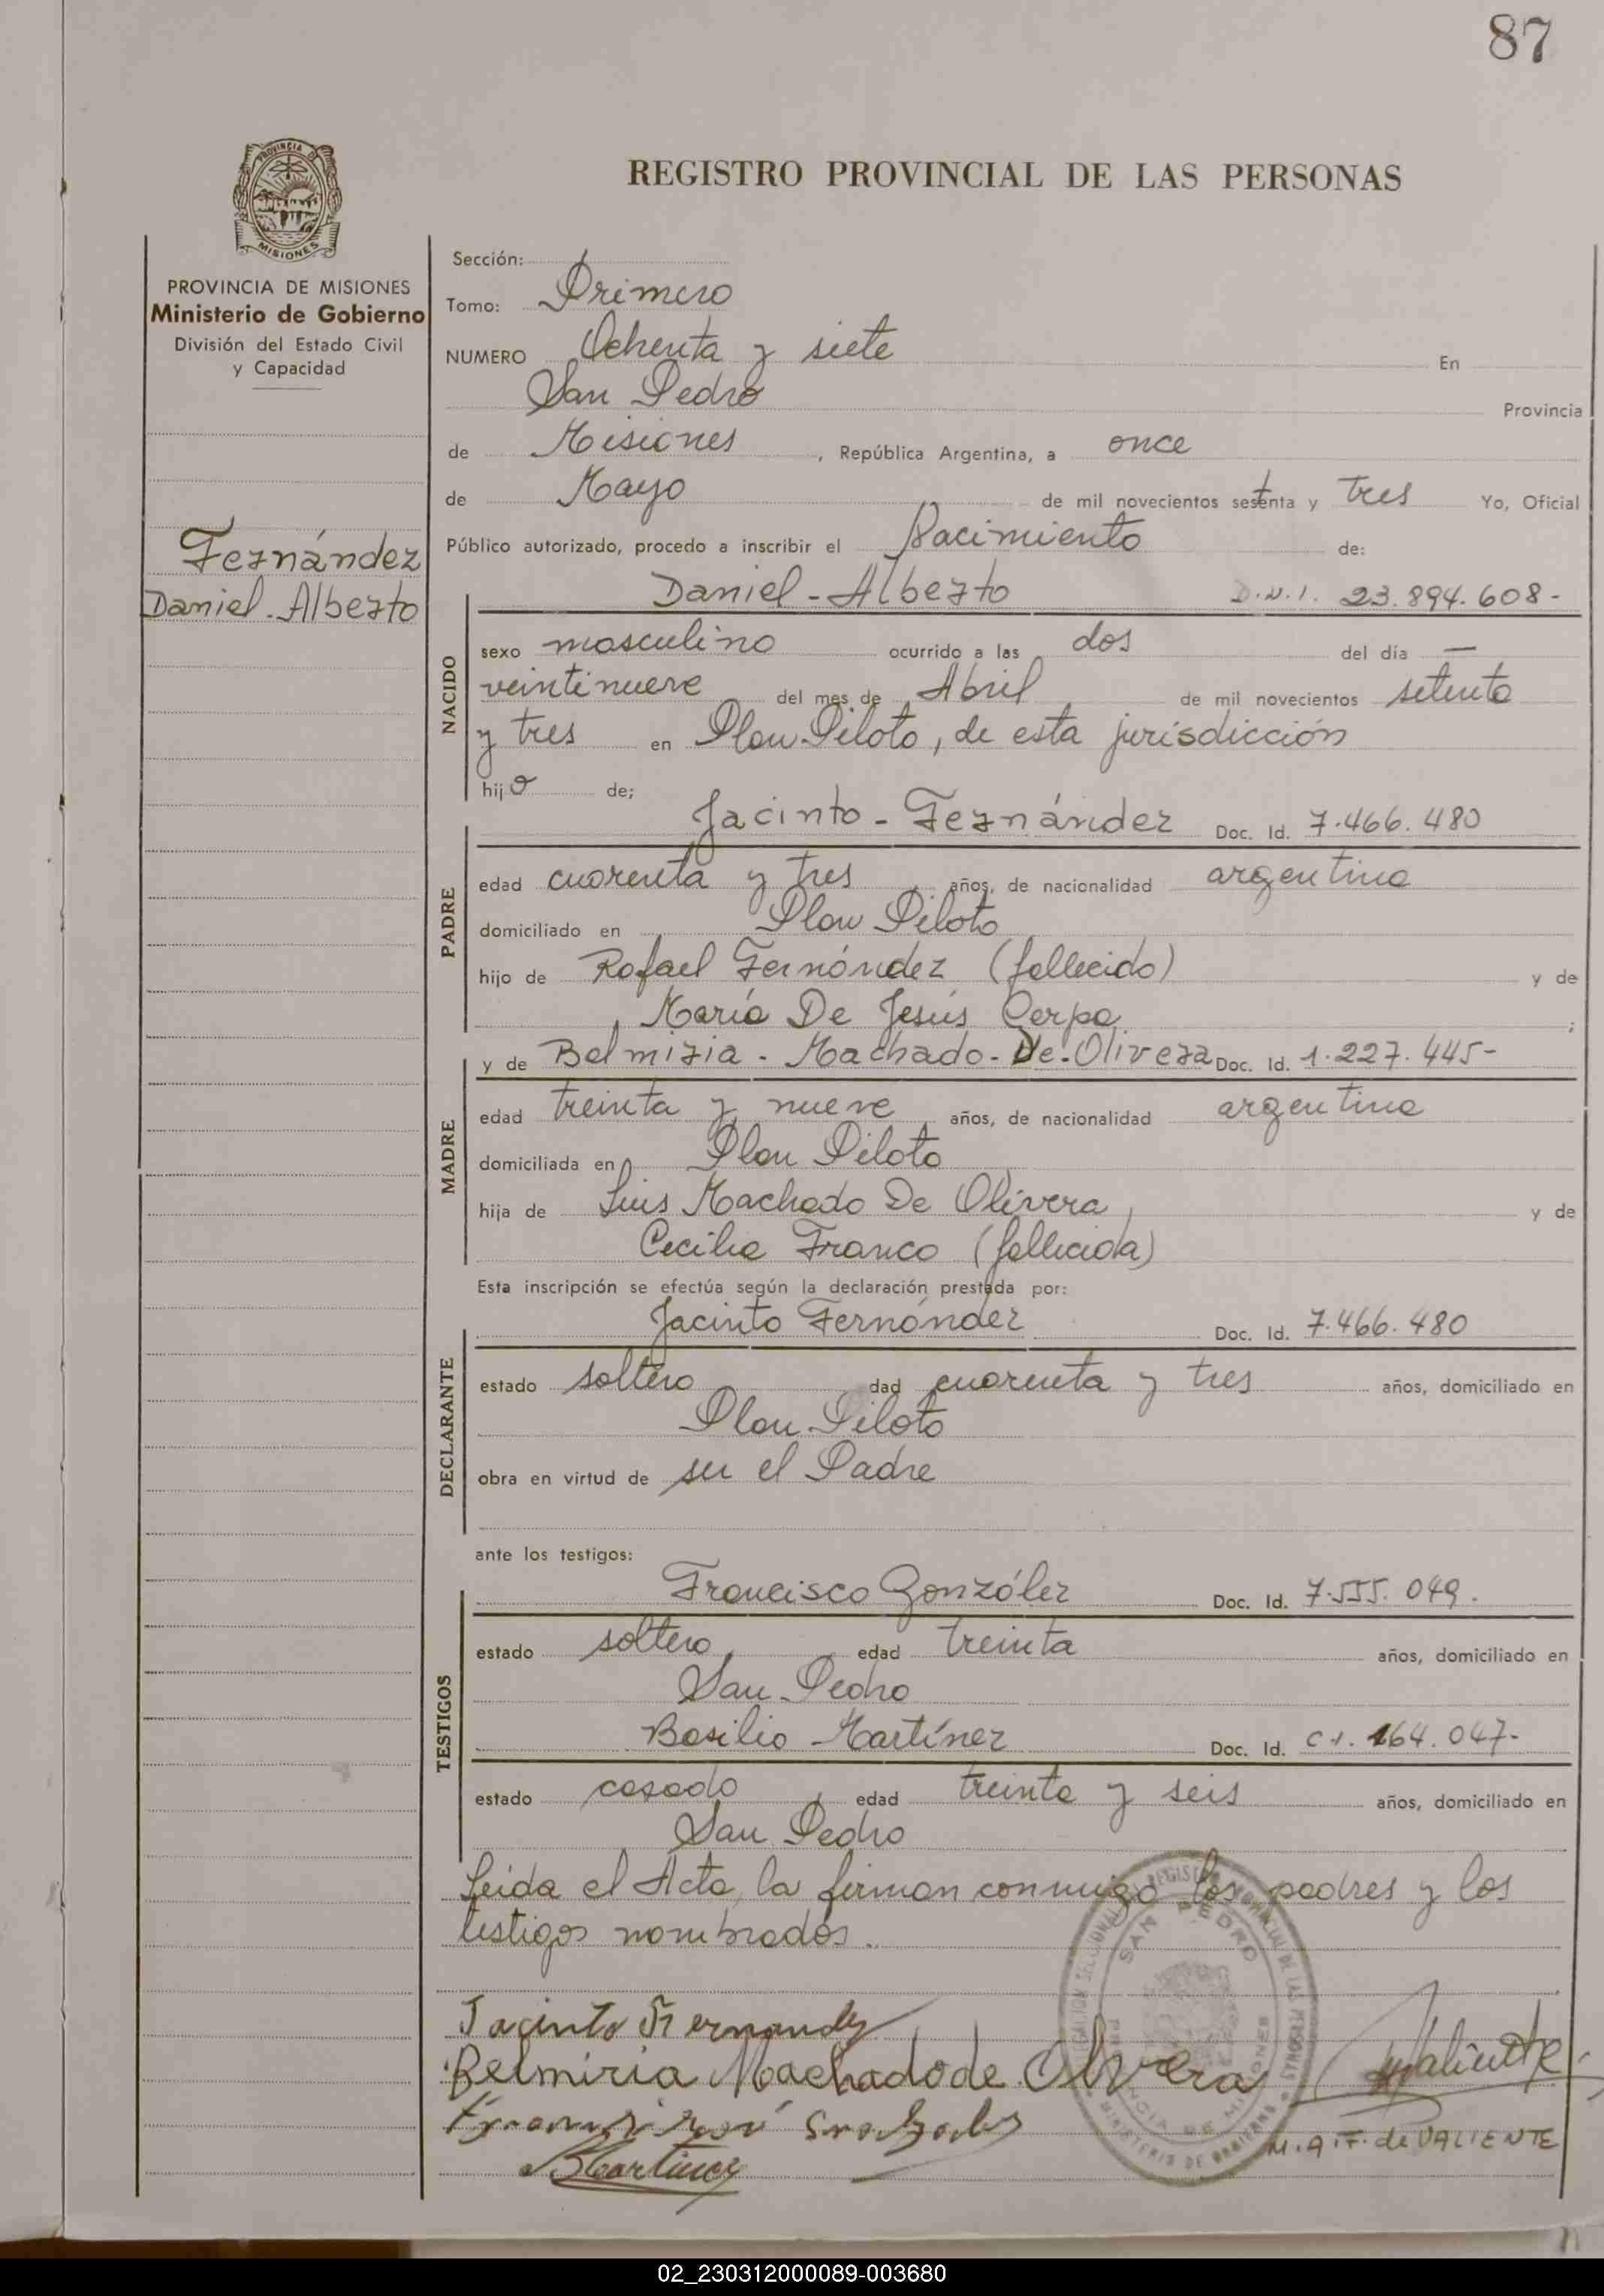 87
PROVINCIA DE
MISIONES
REGISTRO PROVINCIAL DE LAS PERSONAS
PROVINCIA DE MISIONES
Ministerio de Gobierno
División del Estado Civil
y Capacidad
Fernández
Daniel - Alberto
Sección:
Tomo: Primero
NUMERO Ochenta y siete En
San Pedro Provincia
de Misiones , República Argentina, a once
de Mayo de mil novecientos setenta y tres Yo, Oficial
Público autorizado, procedo a inscribir el Nacimiento de:
NACIDO
Daniel - Alberto D.N.I. 23.894.608-
sexo masculino ocurrido a las dos del día —
veintinueve del mes de Abril de mil novecientos setenta
y tres en Plan Piloto, de esta jurisdicción
hijo de;
PADRE
Jacinto - Fernández Doc. Id. 7.466.480
edad cuarenta y tres años, de nacionalidad argentina
domiciliado en Plan Piloto
hijo de Rafael Fernández (fallecido) y de
María De Jesús Cerpa ;
MADRE
y de Belmiria - Machado - De - Olivera Doc. Id. 1.227.445-
edad treinta y nueve años, de nacionalidad argentina
domiciliada en Plan Piloto
hija de Luis Machado De Olivera, y de
Cecilia Franco (fallecida)
Esta inscripción se efectúa según la declaración prestada por:
DECLARANTE
Jacinto Fernández Doc. Id. 7.466.480
estado soltero dad cuarenta y tres años, domiciliado en
Plan Piloto
obra en virtud de ser el Padre
ante los testigos:
TESTIGOS
Francisco González Doc. Id. 7.555.049.
estado soltero edad treinta años, domiciliado en
San Pedro
Basilio Martínez Doc. Id. C.I. 164.047-
estado casado edad treinta y seis años, domiciliado en
San Pedro
Leida el Acta, la firman conmigo los padres y los
testigos nombrados.
SAN PEDRO
Jacinto Fernandez
Belmiria Machado de Olivera
Valiente
M.A.F. de VALIENTE
BMartinez
02_230312000089-003680